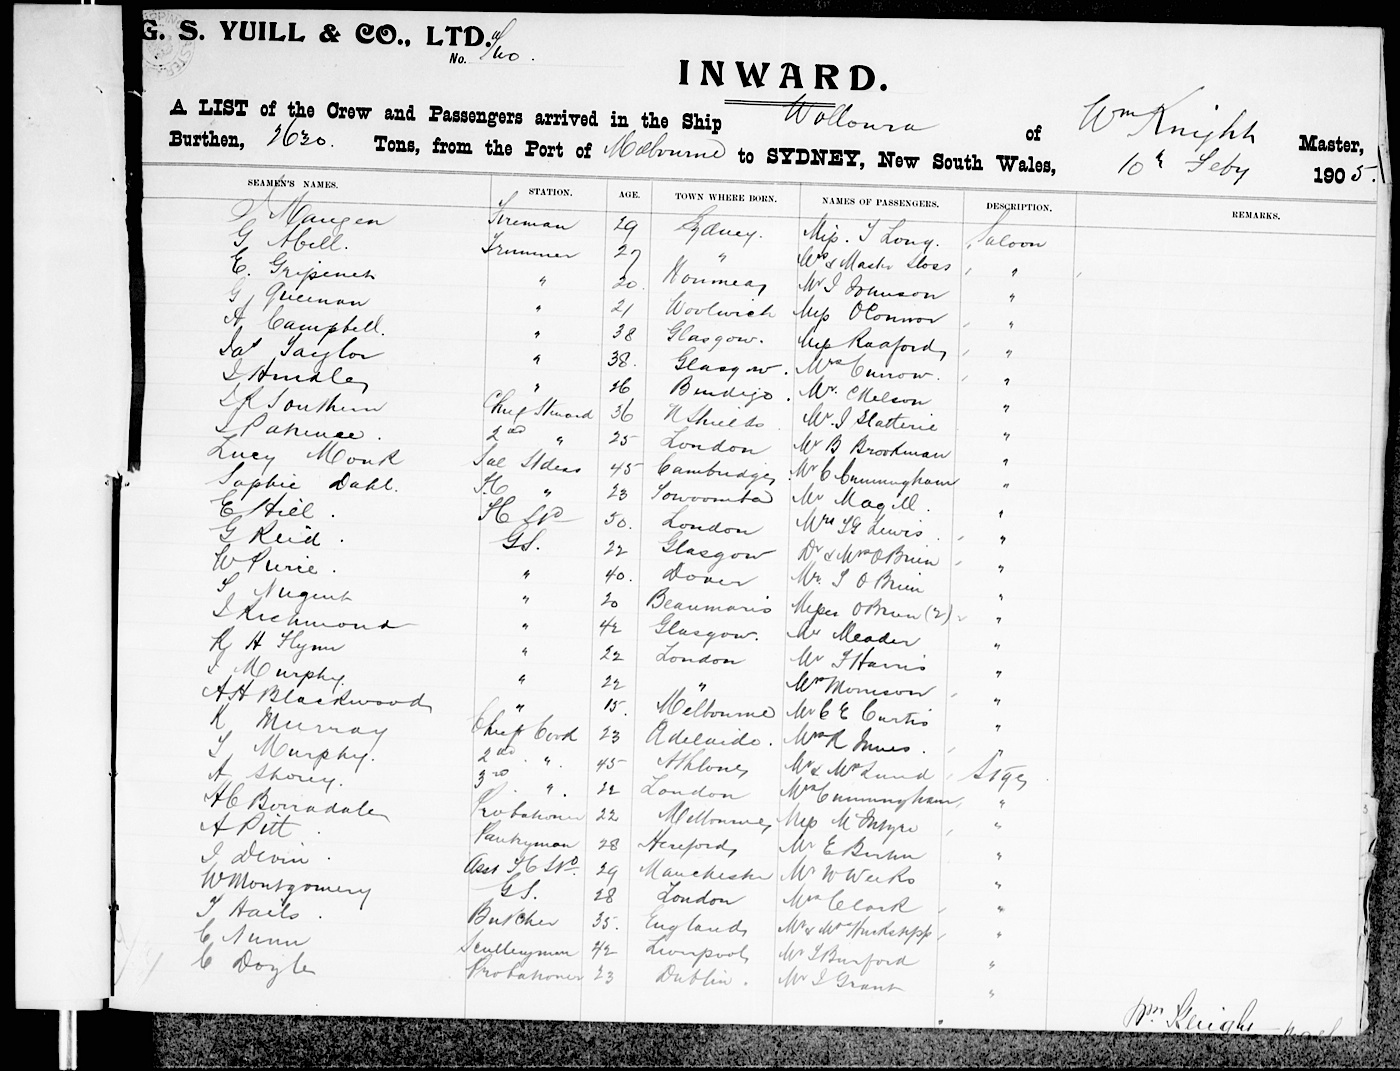 G. S. YUILL & CO., LTD.
No.
INWARD.
A LIST of the Crew and Passengers arrived in the Ship Wollowra of Wm Knight Master,
Burthen, 2630. Tons, from the Port of Melbourne to SYDNEY, New South Wales, 10th Feby 1905.
SEAMEN'S NAMES. STATION. AGE. TOWN WHERE BORN. NAMES OF PASSENGERS. DESCRIPTION. REMARKS.
Fireman 29 Sydney. Miss. T Long. Saloon
G Abell. Trimmer 27 " Mrs & Master "
E. " 20. Mr J Johnson "
G " 21 Woolwich Miss O'Connor "
A Campbell. " 38 Glasgow. Miss "
Jas Taylor " 38. Glasgow. Mrs Curnow. "
" 26 Bendigo. Mr. C Nelson "
Southern Chief Steward 36 N Shields Mr. J Slatterie "
Patience. 2nd " 25 London Mr B Brookman "
Lucy Monk Sal Stdess 45 Cambridge. Mr C Cunningham "
Sophie Dahl. " 23 Toowoomba Mr Magill. "
E Hill. 50. London Mrs Lewis. "
G Reid. G.S. 22 Glasgow Dr & Mrs O'Brien "
W Pirie. " 40. Dover Mr. J O'Brien "
Nugent " 20 Beaumaris Misses O'Brien (2) "
J Richmond " 42 Glasgow. Mr Meader "
H Flynn " 22 London Mr Harris "
J Murphy. " 22 " Mrs Morrison "
A H Blackwood " 15. Melbourne Mr C E Curtis "
K Murray Chief Cook 23 Adelaide. Mrs R Innes. "
T Murphy. 2nd " 45 Athlone Mr & Mrs Lund Stge
A Shorey. 3rd " 22 London Mrs Cunningham "
A C Borradale Probationer 22 Melbourne Miss McIntyre "
A Pitt. Pantryman 28 Hereford Mr E "
J Devin. Asst 29 Manchester Mr W Weeks "
W Montgomery G.S. 28 London Mrs Clark "
T Hails. Butcher 35. England Mr & Mrs "
C Nunn Sculleryman 42 Liverpool Mr Burford "
C Doyle Probationer 23 Dublin. Mr J Grant "
Wm Knight